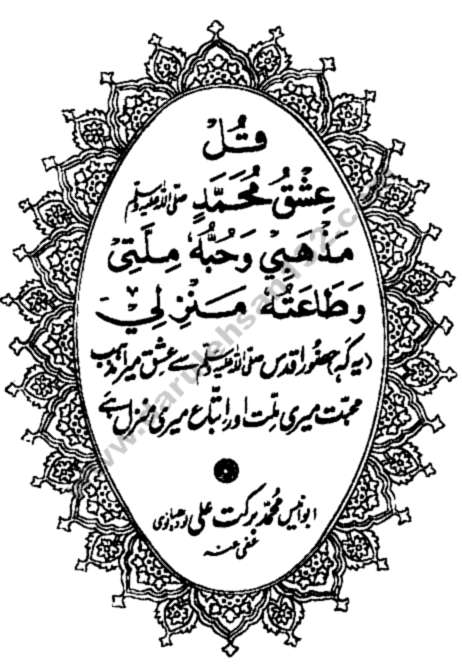 قُلْ
عِشْقُ مُحَمَّدٍ صلی اللہ علیہ وسلم
مَذْهَبِيْ وَحُبُّهٗ مِلَّتِيْ
وَطَاعَتُهٗ مَنْزِلِيْ
دیہ کہ، حضور اقدس صلی اللہ علیہ وسلم سے عشق میرا مذہب
محبت میری ملت اور اتباع میری منزل ہے
ابو انیس محمد برکت علی لودھیانوی
عفی عنہ